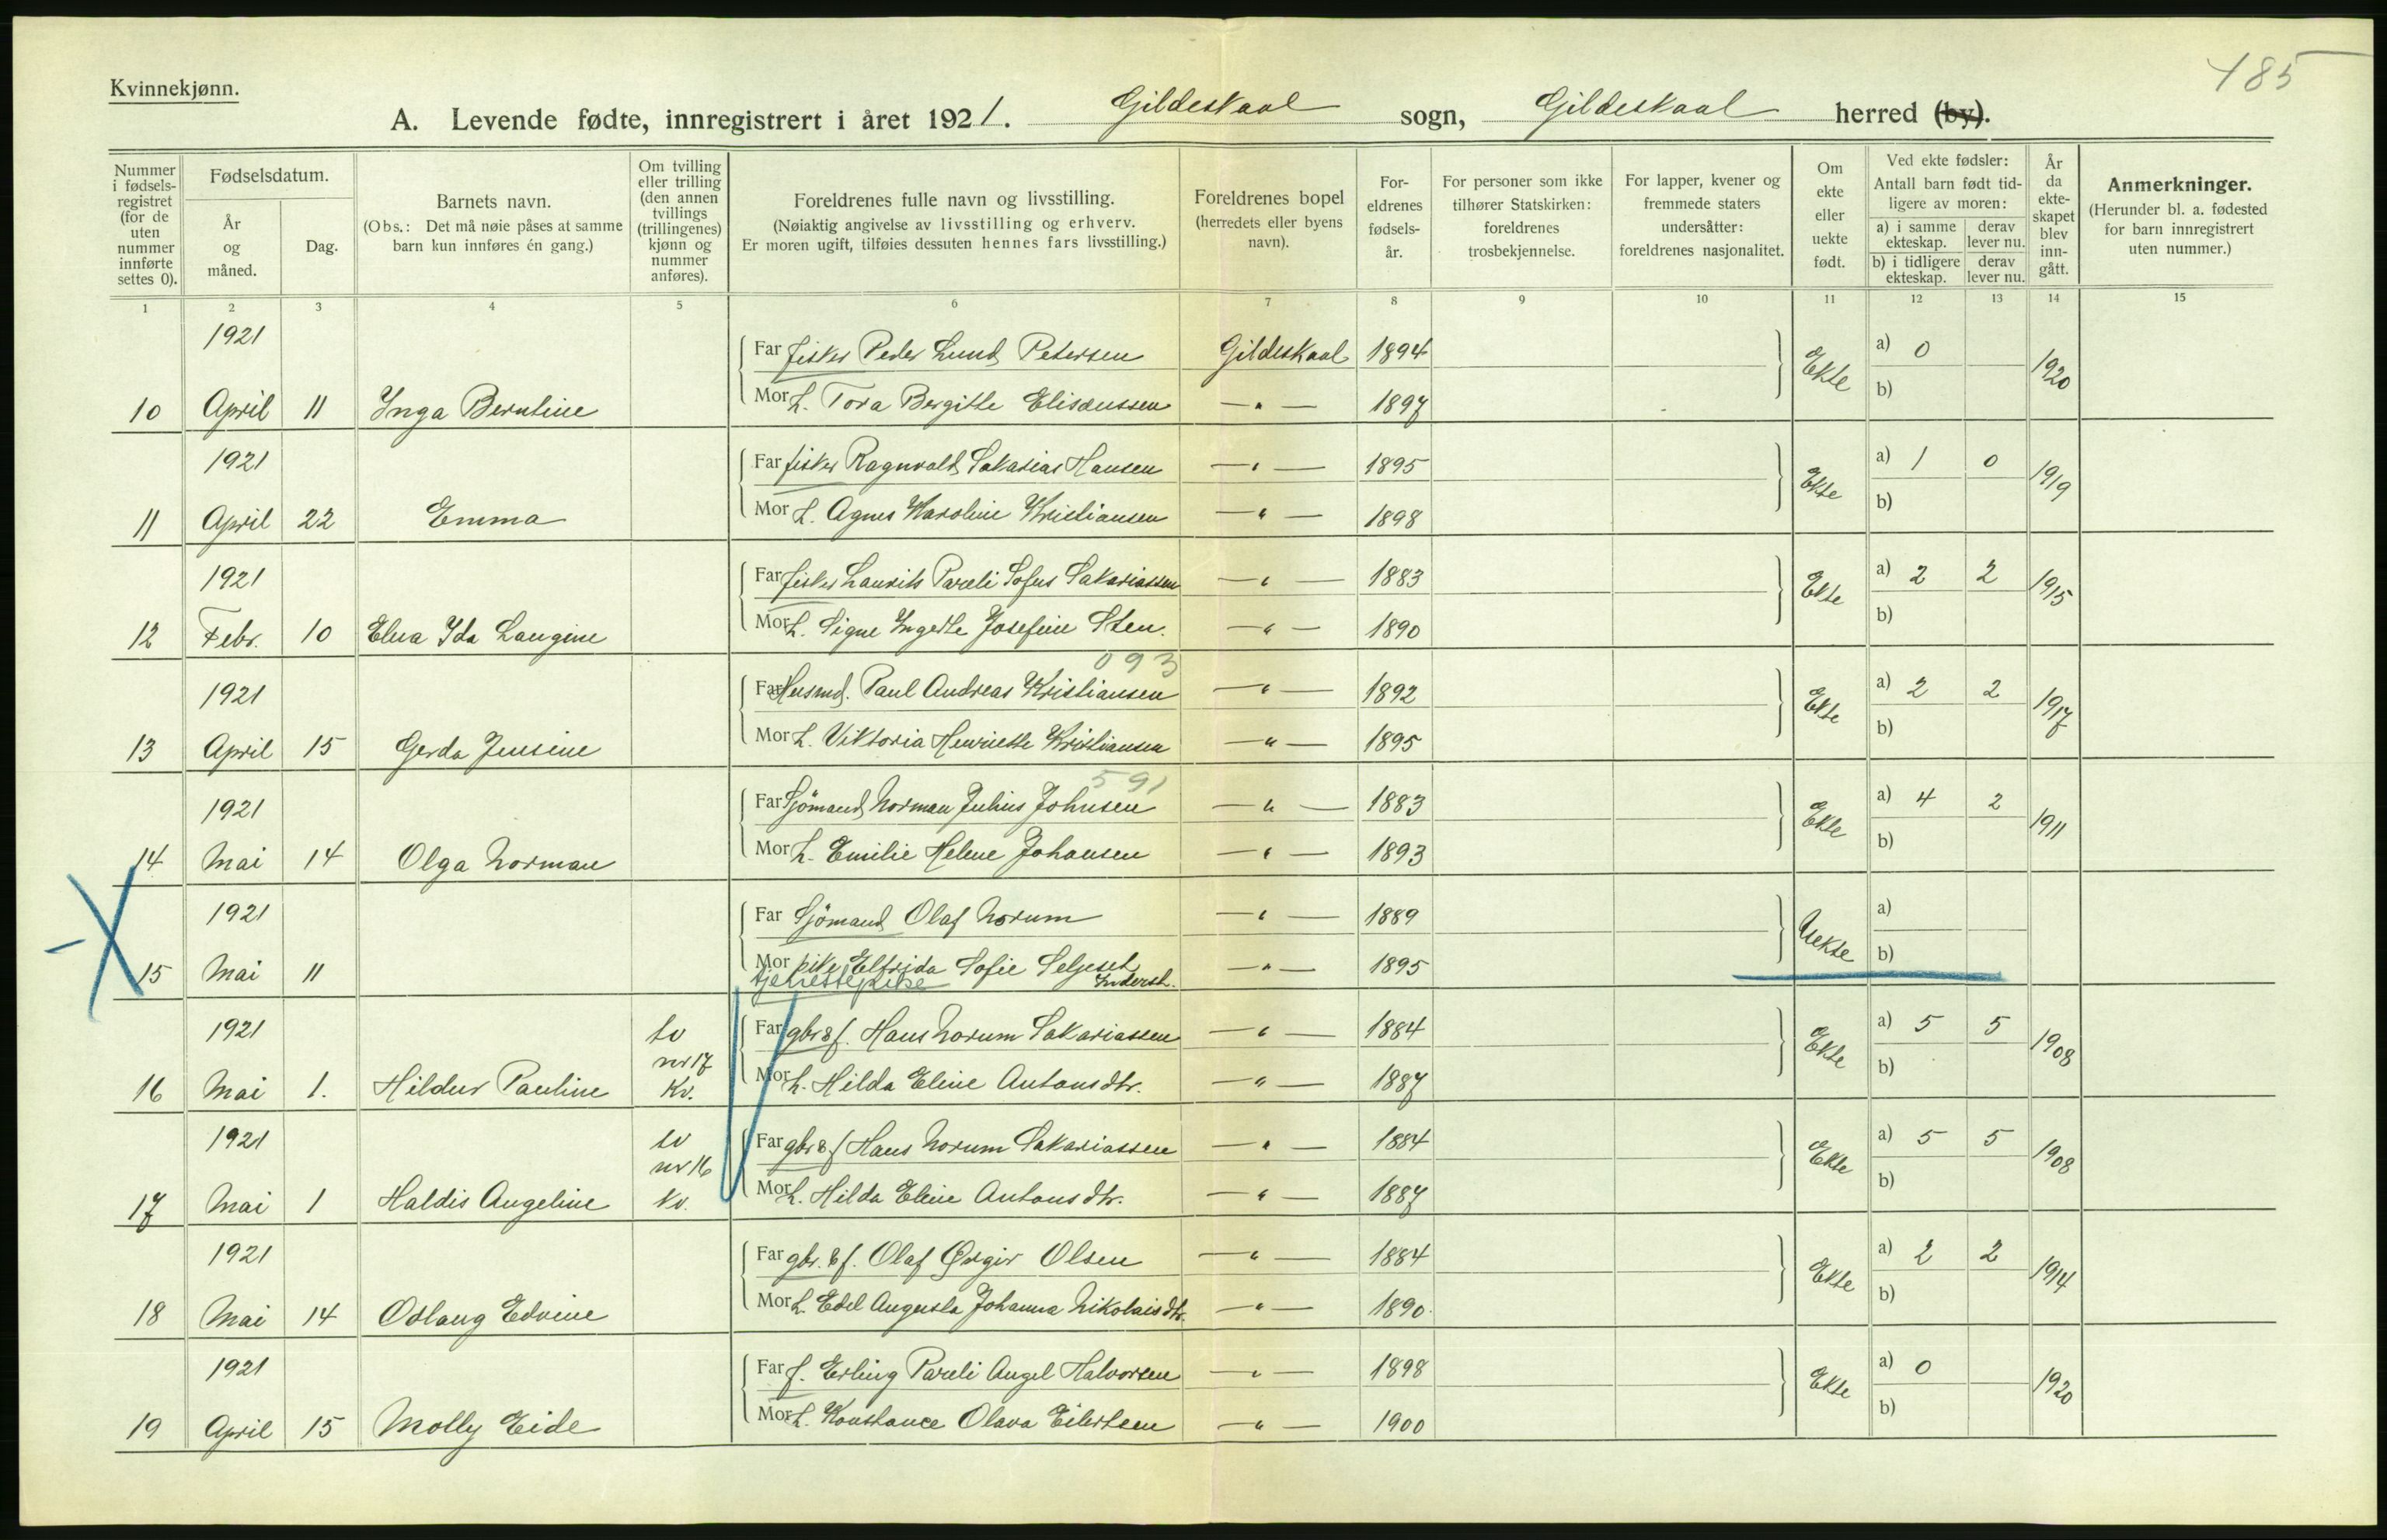 185
Kvinnekjønn.
A. Levende fødte, innregistrert i året 1921. Gildeskaal sogn, Gildeskaal herred (by).
Nummer i fødsels-registret (for de uten nummer innførte settes 0).
Fødselsdatum.
År og måned.
Dag.
Barnets navn.
(Obs.: Det må nøie påses at samme barn kun innføres én gang.)
Om tvilling eller trilling (den annen tvillings (trillingenes) kjønn og nummer anføres).
Foreldrenes fulle navn og livsstilling.
(Nøiaktig angivelse av livsstilling og erhverv. Er moren ugift, tilføies dessuten hennes fars livsstilling.)
Foreldrenes bopel (herredets eller byens navn).
For-eldrenes fødsels-år.
For personer som ikke tilhører Statskirken: foreldrenes trosbekjennelse.
For lapper, kvener og fremmede staters undersåtter: foreldrenes nasjonalitet.
Om ekte eller uekte født.
Ved ekte fødsler: Antall barn født tid-ligere av moren:
a) i samme ekteskap. derav lever nu.
b) i tidligere ekteskap. derav lever nu.
År da ekte-skapet blev inn-gått.
Anmerkninger.
(Herunder bl. a. fødested for barn innregistrert uten nummer.)
1 2 3 4 5 6 7 8 9 10 11 12 13 14 15
1921 Far fisker Peder Lund Petersen Gildeskaal 1894 Ekte a) 0 1920
10 April 11 Inga Berntine Mor h. Tora Bergitte Elisæussen — " — 1897 b)
1921 Far fisker Ragnvald Sakarias Hansen — " — 1895 Ekte a) 1 0 1919
11 April 22 Emma Mor h. Agnes Karoline Kristiansen — " — 1898 b)
1921 Far fisker Laurits Pareli Sofus Sakariassen — " — 1883 Ekte a) 2 2 1915
12 Febr. 10 Elna Ida Laugine Mor h. Signe Ingerte Josefine Sten. — " — 1890 b)
093
1921 Far Husmd. Paul Andreas Kristiansen — " — 1892 Ekte a) 2 2 1917
13 April 15 Gerda Jensine Mor h. Viktoria Henriette Kristiansen — " — 1895 b)
591
1921 Far Sjömand Norman Julius Johnsen — " — 1883 Ekte a) 4 2 1911
14 Mai 14 Olga Norman Mor h. Emilie Helene Johansen — " — 1893 b)
1921 Far Sjömand Olaf Norum — " — 1889 Uekte a)
15 Mai 11 Mor pike Elfrida Sofie Seljeset — " — 1895 b)
tjenestepike Indersh.
1921 tv Far gbr & f. Hans Norum Sakariassen — " — 1884 Ekte a) 5 5 1908
nr 17
16 Mai 1. Hildur Pauline Kv. Mor h. Hilda Eline Antonsdtr. — " — 1887 b)
1921 tv Far gbr & f Hans Norum Sakariassen — " — 1884 Ekte a) 5 5 1908
nr 16
17 Mai 1 Haldis Angeline kv. Mor h. Hilda Eline Antonsdtr. — " — 1887 b)
1921 Far gbr. & f. Olaf Ørgir Olsen — " — 1884 Ekte a) 2 2 1914
18 Mai 14 Oslaug Edvine Mor h. Edel Augusta Johanna Nikolaisdtr. — " — 1890. b)
1921 Far f. Erling Pareli Angel Halvorsen — " — 1898 Ekte a) 0 1920
19 April 15 Molly Eide Mor h. Konstance Olava Eilertsen — " — 1900 b)